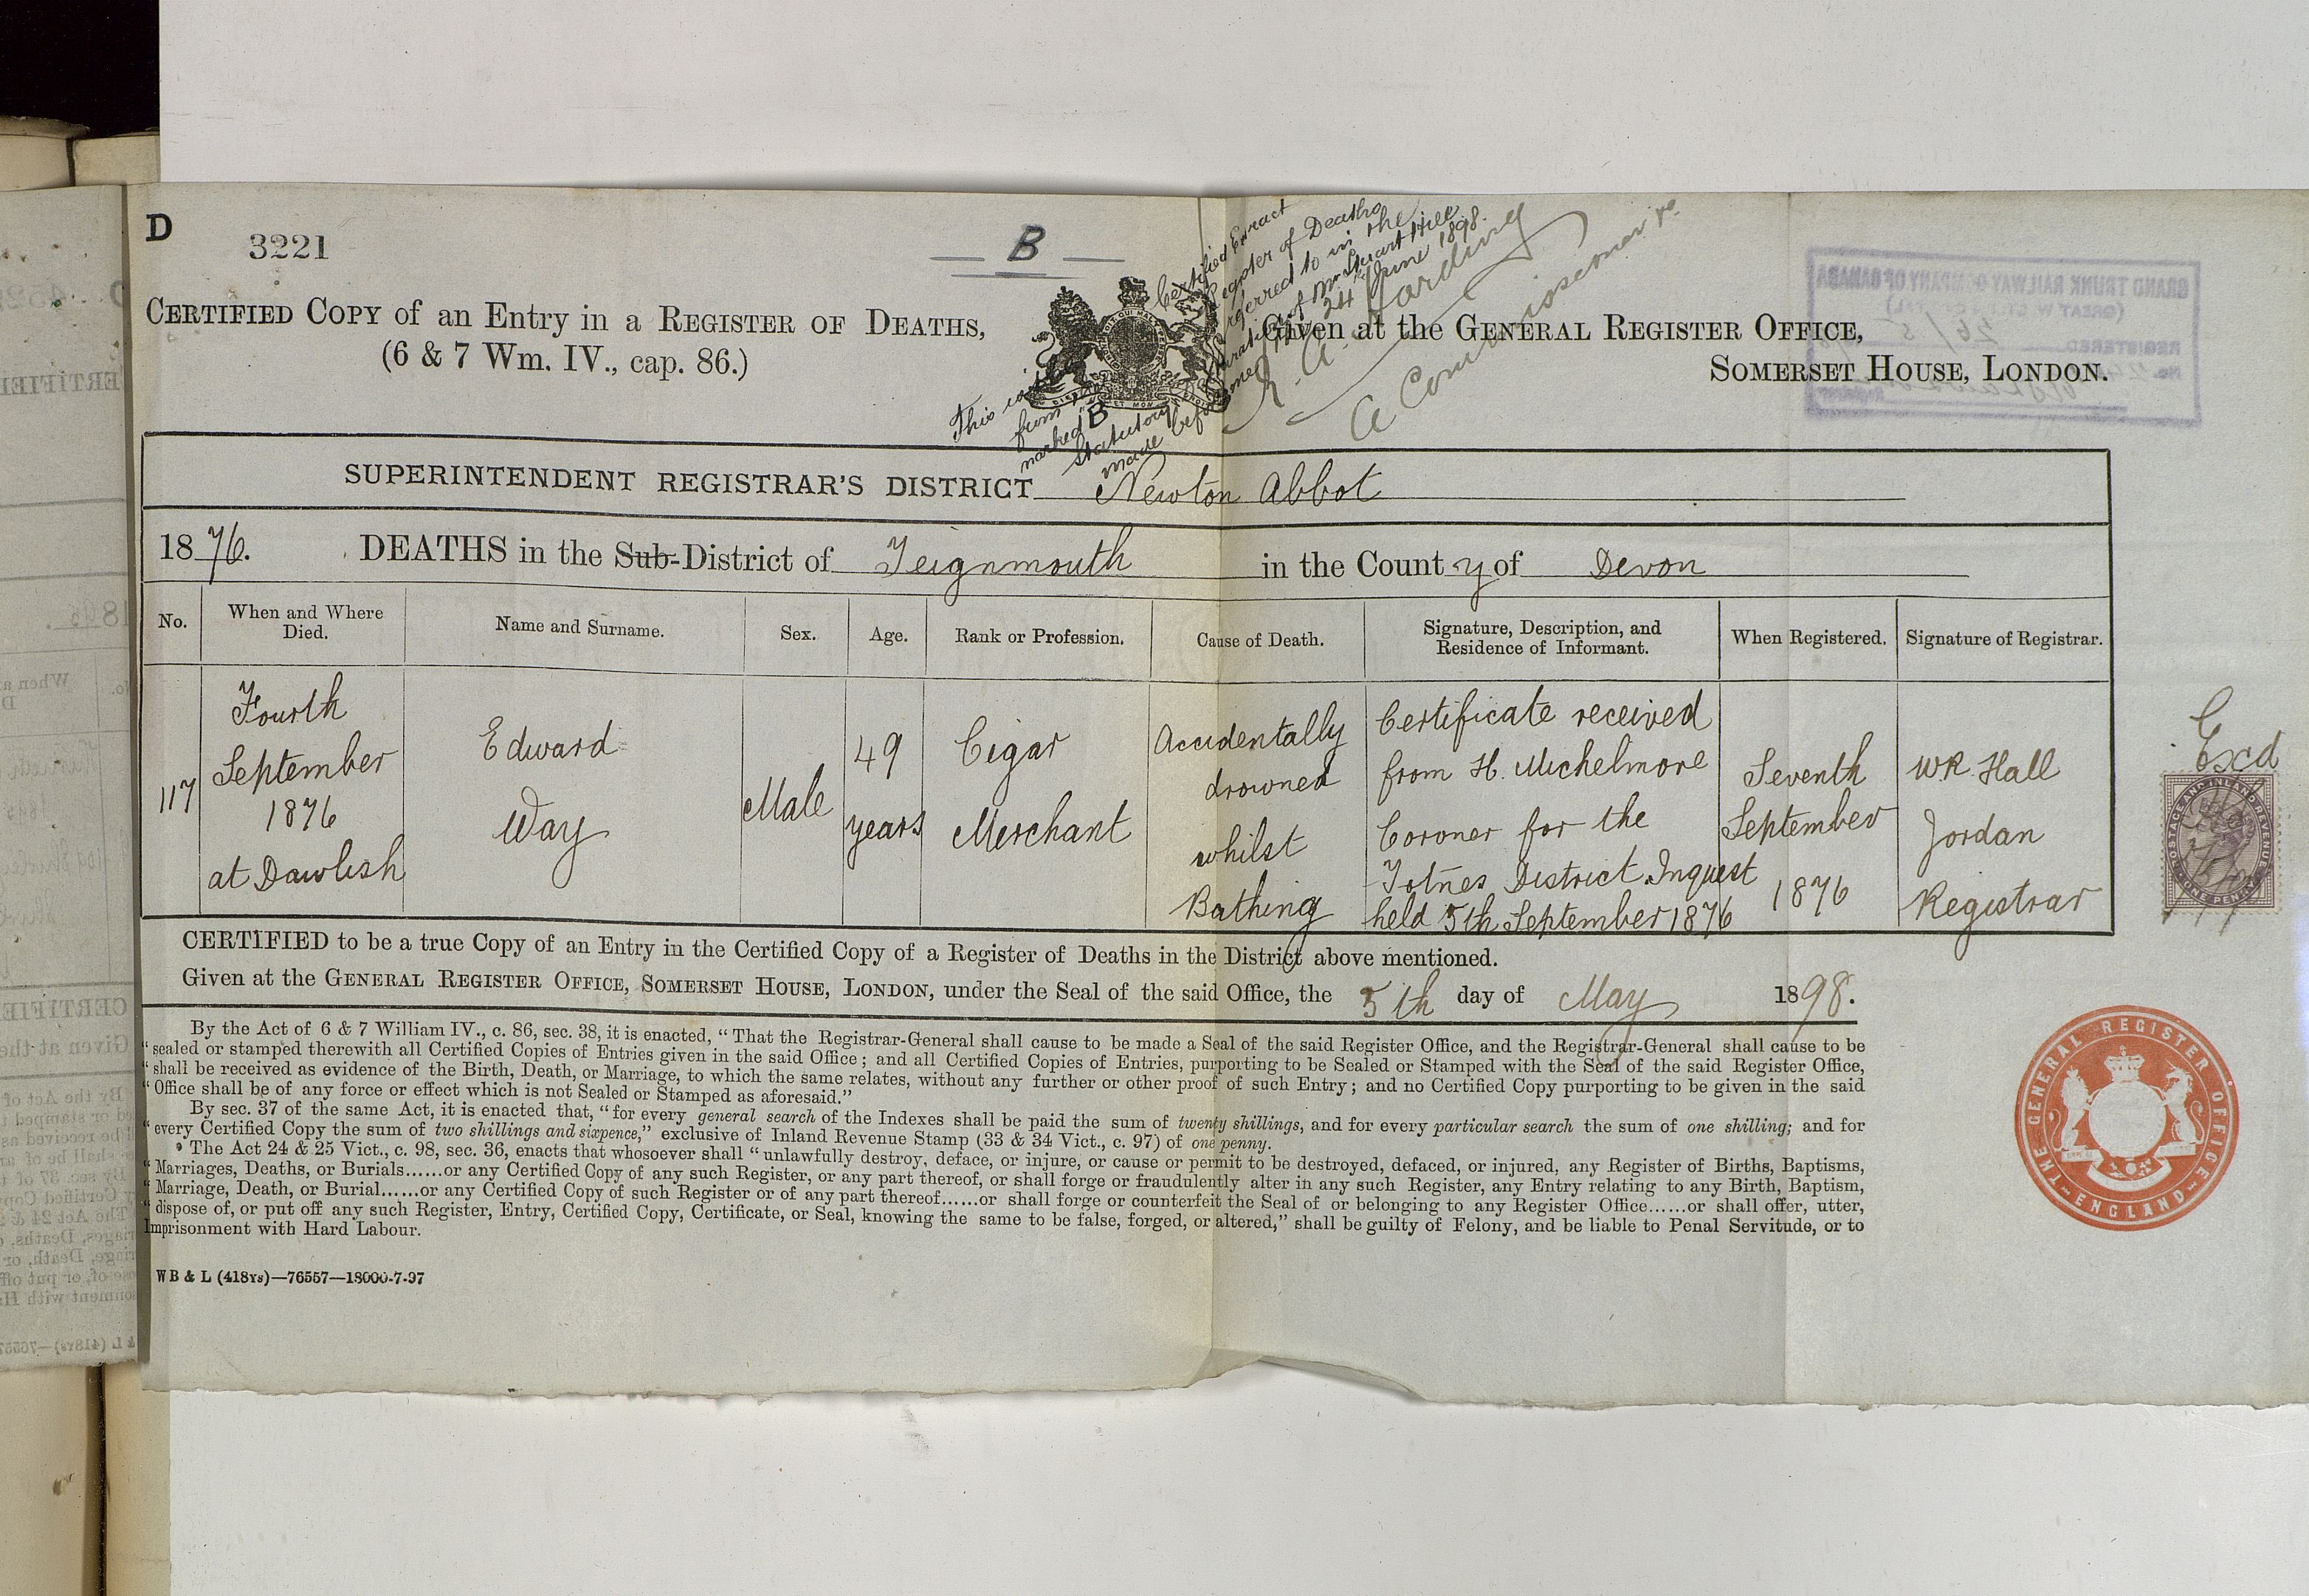 D
3221
B
CERTIFIED COPY of an Entry in a REGISTER OF DEATHS,
(6 & 7 Wm. IV., cap. 86.)
This is Certified Extract
from Register of Deaths
marked "B" referred to in the
Statutory Declaration of Mr Stuart Hill
made before me this 24th June 1898.
Harding
A Commissioner &c.
Given at the GENERAL REGISTER OFFICE,
SOMERSET HOUSE, LONDON.
GRAND TRUNK RAILWAY COMPANY OF CANADA
REGISTERED
SUPERINTENDENT REGISTRAR'S DISTRICT Newton Abbot
1876. DEATHS in the Sub-District of Teignmouth in the County of Devon
No. When and Where Died. Name and Surname. Sex. Age. Rank or Profession. Cause of Death. Signature, Description, and Residence of Informant. When Registered. Signature of Registrar.
117
Fourth
September
1876
at Dawlish
Edward
Way
Male
49
years
Cigar
Merchant
Accidentally
drowned
whilst
Bathing
Certificate received
from H. Michelmore
Coroner for the
Totnes District Inquest
held 5th September 1876
Seventh
September
1876
WR Hall
Jordan
Registrar
Exd
POSTAGE AND INLAND REVENUE
ONE PENNY
CERTIFIED to be a true Copy of an Entry in the Certified Copy of a Register of Deaths in the District above mentioned.
Given at the GENERAL REGISTER OFFICE, SOMERSET HOUSE, LONDON, under the Seal of the said Office, the 5th day of May 1898.
By the Act of 6 & 7 William IV., c. 86, sec. 38, it is enacted, "That the Registrar-General shall cause to be made a Seal of the said Register Office, and the Registrar-General shall cause to be
"sealed or stamped therewith all Certified Copies of Entries given in the said Office; and all Certified Copies of Entries, purporting to be Sealed or Stamped with the Seal of the said Register Office,
"shall be received as evidence of the Birth, Death, or Marriage, to which the same relates, without any further or other proof of such Entry; and no Certified Copy purporting to be given in the said
"Office shall be of any force or effect which is not Sealed or Stamped as aforesaid."
By sec. 37 of the same Act, it is enacted that, "for every general search of the Indexes shall be paid the sum of twenty shillings, and for every particular search the sum of one shilling; and for
"every Certified Copy the sum of two shillings and sixpence," exclusive of Inland Revenue Stamp (33 & 34 Vict., c. 97) of one penny.
The Act 24 & 25 Vict., c. 98, sec. 36, enacts that whosoever shall "unlawfully destroy, deface, or injure, or cause or permit to be destroyed, defaced, or injured, any Register of Births, Baptisms,
"Marriages, Deaths, or Burials......or any Certified Copy of any such Register, or any part thereof, or shall forge or fraudulently alter in any such Register, any Entry relating to any Birth, Baptism,
"Marriage, Death, or Burial......or any Certified Copy of such Register or of any part thereof......or shall forge or counterfeit the Seal of or belonging to any Register Office......or shall offer, utter,
"dispose of, or put off any such Register, Entry, Certified Copy, Certificate, or Seal, knowing the same to be false, forged, or altered," shall be guilty of Felony, and be liable to Penal Servitude, or to
Imprisonment with Hard Labour.
THE GENERAL REGISTER OFFICE
ENGLAND
WB & L (418Ys)—76557—18000-7-97